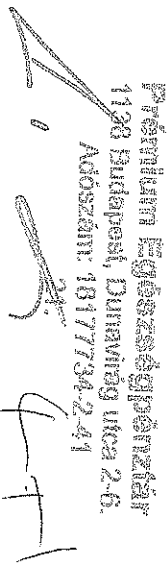 Prémium Egészségpénztár
1138 Budapest, Dunavirág utca 2-6.
Adószám: 18177734-2-41
2.